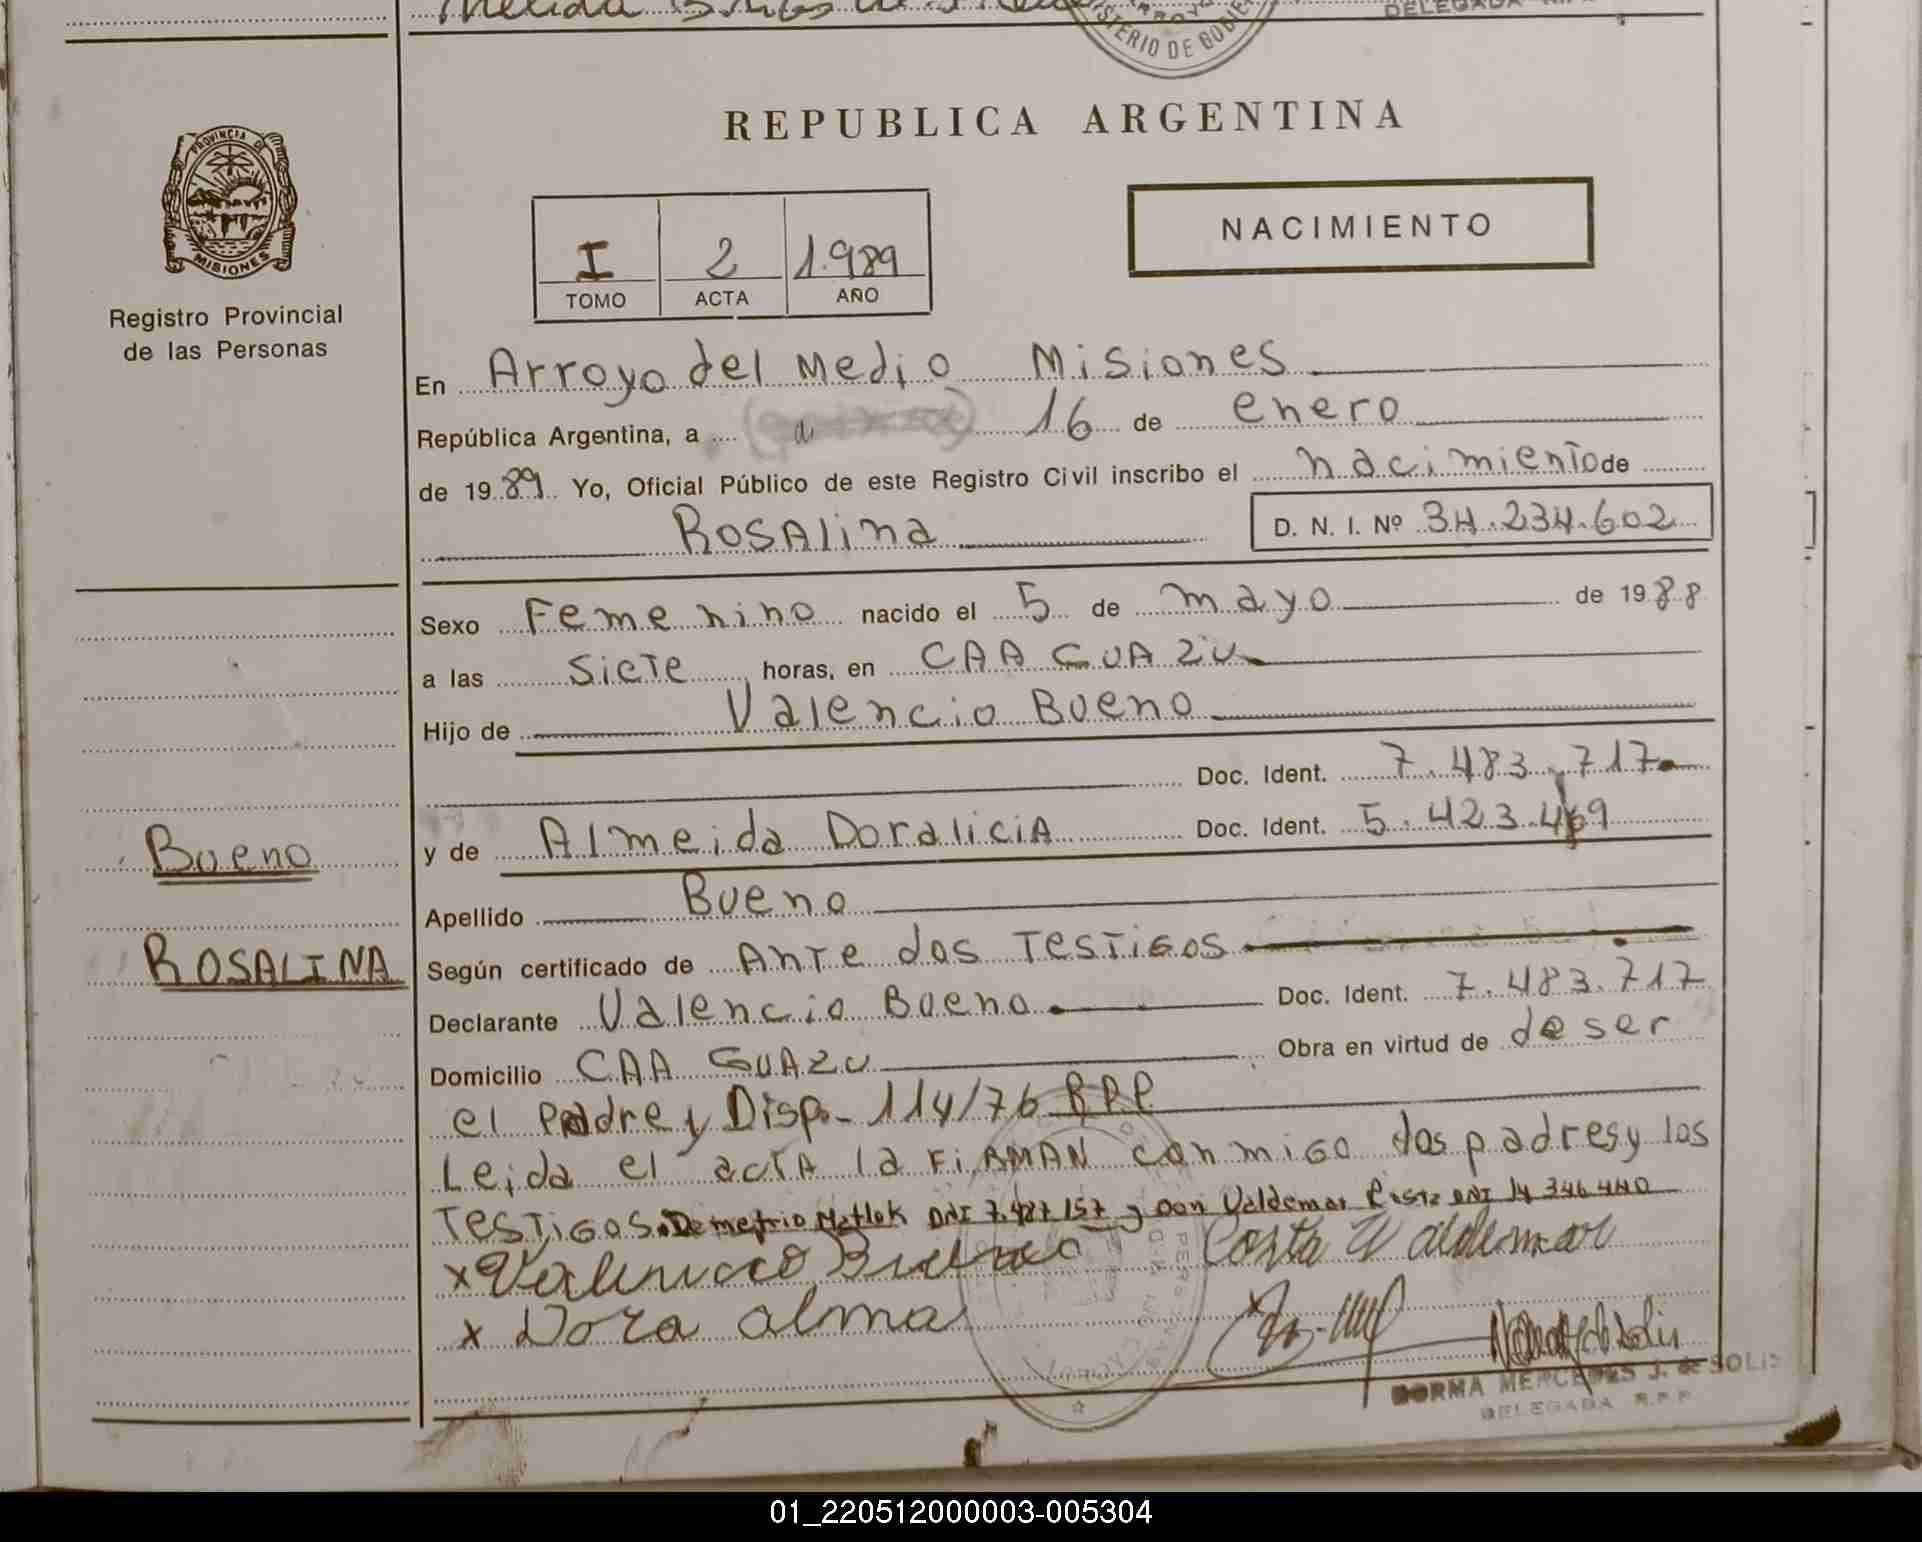 MINISTERIO DE GOBIE
DELEGADA
REPUBLICA ARGENTINA
PROVINCIA DE
MISIONES
Registro Provincial
de las Personas
I 2 1.989
TOMO ACTA AÑO
NACIMIENTO
En Arroyo del Medio Misiones
República Argentina, a 16 de enero
de 1989 Yo, Oficial Público de este Registro Civil inscribo el nacimiento de
ROSALina D. N. I. Nº 34.234.602
Sexo Femenino nacido el 5 de mayo de 1988
a las Siete horas, en CAA GUAZU
Hijo de Valencio Bueno
Doc. Ident. 7.483.717
y de Almeida DoraliciA Doc. Ident. 5.423.469
Bueno
ROSALINA
Apellido Bueno
Según certificado de Ante dos TesTiGos
Declarante Valencio Bueno Doc. Ident. 7.483.717
Domicilio CAA GUAZU Obra en virtud de de ser
el Padre y Disp. 114/76 RPP
Leida el acTA la FiRMAN conmiGo los padres y los
TesTiGos. Demetrio Matlok DNI 7.487.157 y Don Valdemar Costa DNI 14 346 440
x Valencio Bueno Costa Valdemar
x Dora alma
NORMA MERCEDES J. de SOLIS
DELEGADA R.P.P
01_220512000003-005304